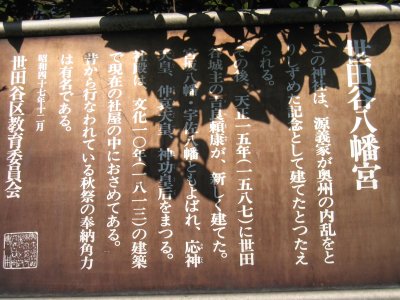 世田谷八幡宮
この神社は、源義家が奥州の内乱をと
りしずめた記念として建てたとつたえ
られる。
その後、天正一五年(一五八七)に世田
谷城主の吉良頼康が、新しく建てた。
八幡・宇佐八幡ともよばれ、応神
天皇、仲哀天皇、神功皇后をまつる。
社殿は、文化一〇年(一八一三)の建築
で現在の社屋の中におさめてある。
昔から行なわれている秋祭の奉納角力
は有名である。
昭和四十七年十二月
世田谷区教育委員会